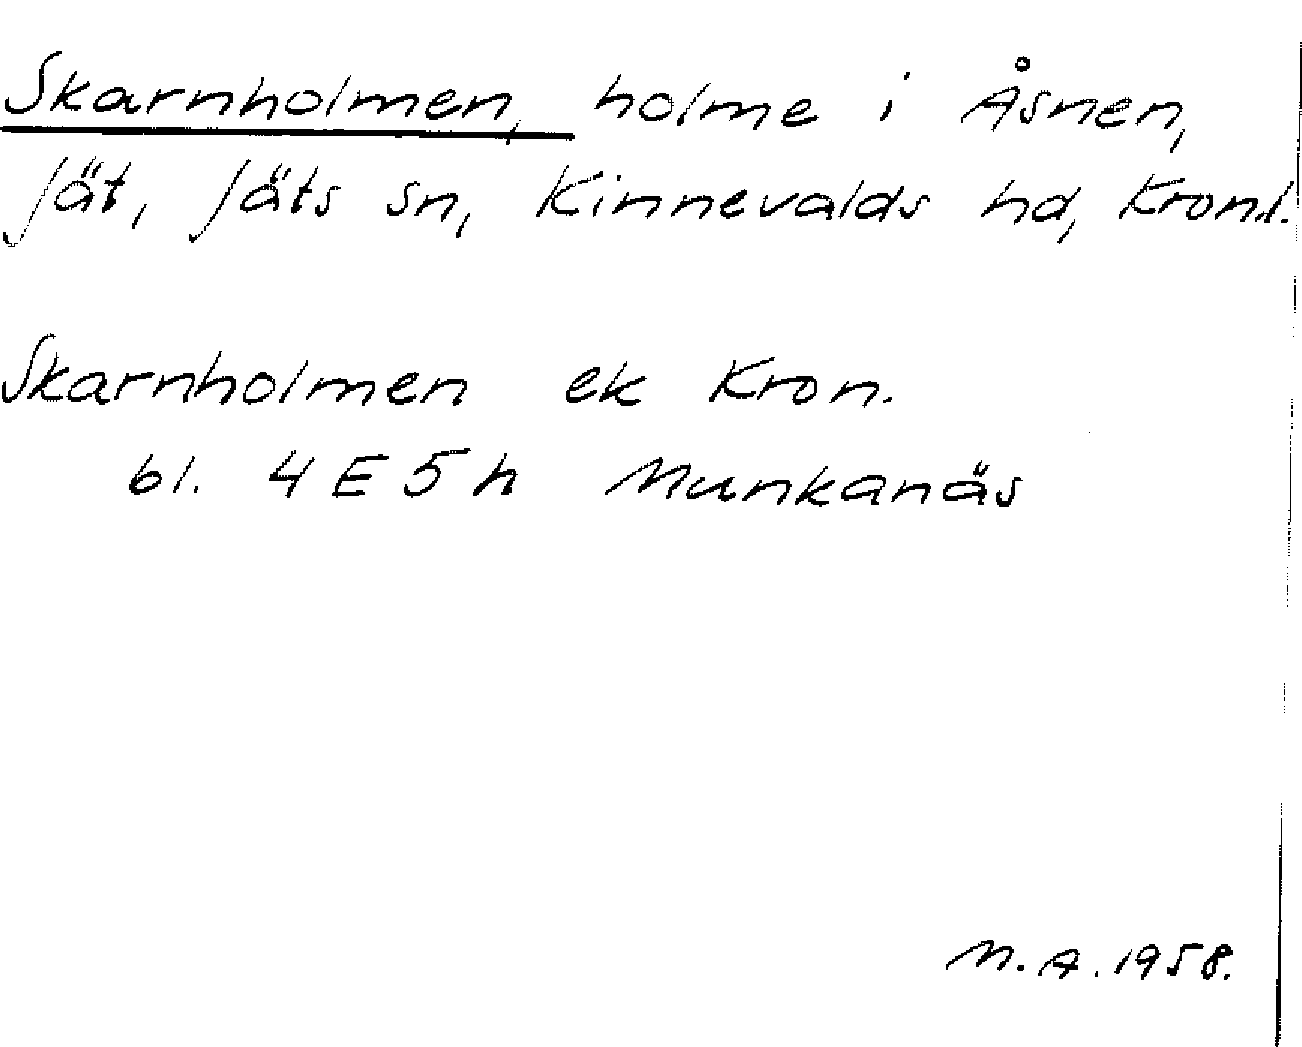 Skarnholmen, holme i Åsnen,
Jät, Jäts sn, Kinnevalds hd, Kron.l.
Skarnholmen ek Kron.
bl. 4 E 5 h Munkanäs
M.A. 1958.